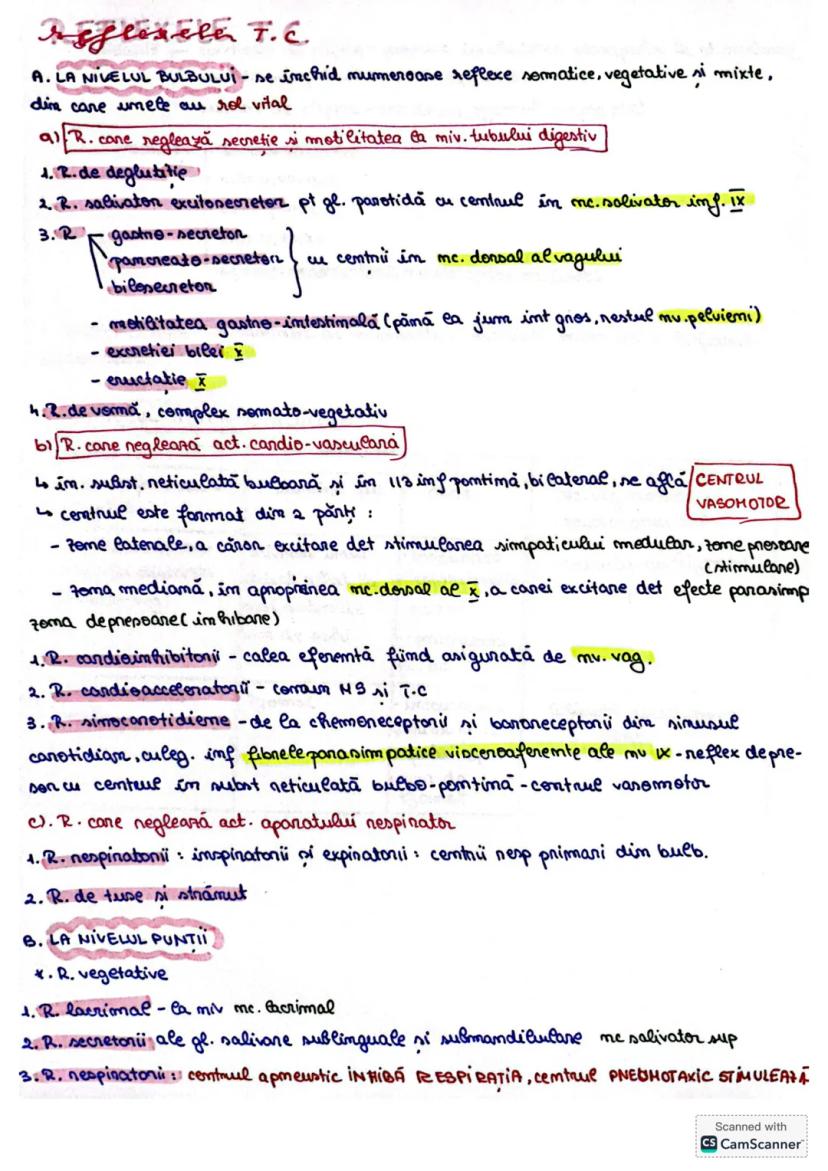 Reflexele T.C.
A. LA NIVELUL BULBULUI - se închid numeroase reflexe somatice, vegetative și mixte,
din care unele au rol vital
a) R. care reglează secreție si motilitatea la niv. tubului digestiv
1. R. de deglutiție
2. R. salivator excitosecretor pt gl. parotidă cu centrul în nc. salivator inf. IX
3. R gastro-secretor
pancreato-secretor } cu centrii în nc. dorsal al vagului
bilosecretor
- motilitatea gastro-intestinală (până la jum int gros, restul nv. pelvieni)
- excreției bilei X
- eructație X
4. R. de vomă, complex somato-vegetativ
b) R. care reglează act. cardio-vasculară
↳ în subst. reticulată bulbară și în 1/3 inf pontină, bilateral, se află CENTRUL VASOMOTOR
↳ centrul este format din 2 părți :
- zone laterale, a căror excitare det stimularea simpaticului medular, zone presoare
(stimulare)
- zona mediană, în apropierea nc. dorsal al X, a carei excitare det efecte parasimp
zona depresoare (inhibare)
1. R. cardioinhibitorii - calea eferentă fiind asigurată de nv. vag.
2. R. cardioacceleratorii - comun MS si T.C
3. R. sinocarotidiene - de la chemoreceptorii și baroreceptorii din sinusul
carotidian, culeg. inf fibrele parasimpatice visceroaferente ale nv IX - reflex depre-
sor cu centrul în subst reticulată bulbo-pontină - centrul vasomotor
c). R. care reglează act. aparatului respirator
1. R. respiratorii : inspiratorii și expiratorii : centrii resp primari din bulb.
2. R. de tuse și strănut
B. LA NIVELUL PUNȚII
*. R. vegetative
1. R. lacrimal - la niv nc. lacrimal
2. R. secretorii ale gl. salivare sublinguale și submandibulare nc salivator sup
3. R. respiratorii : centrul apneustic INHIBĂ RESPIRAȚIA, centrul PNEUMOTAXIC STIMULEAZĂ
Scanned with
CS CamScanner